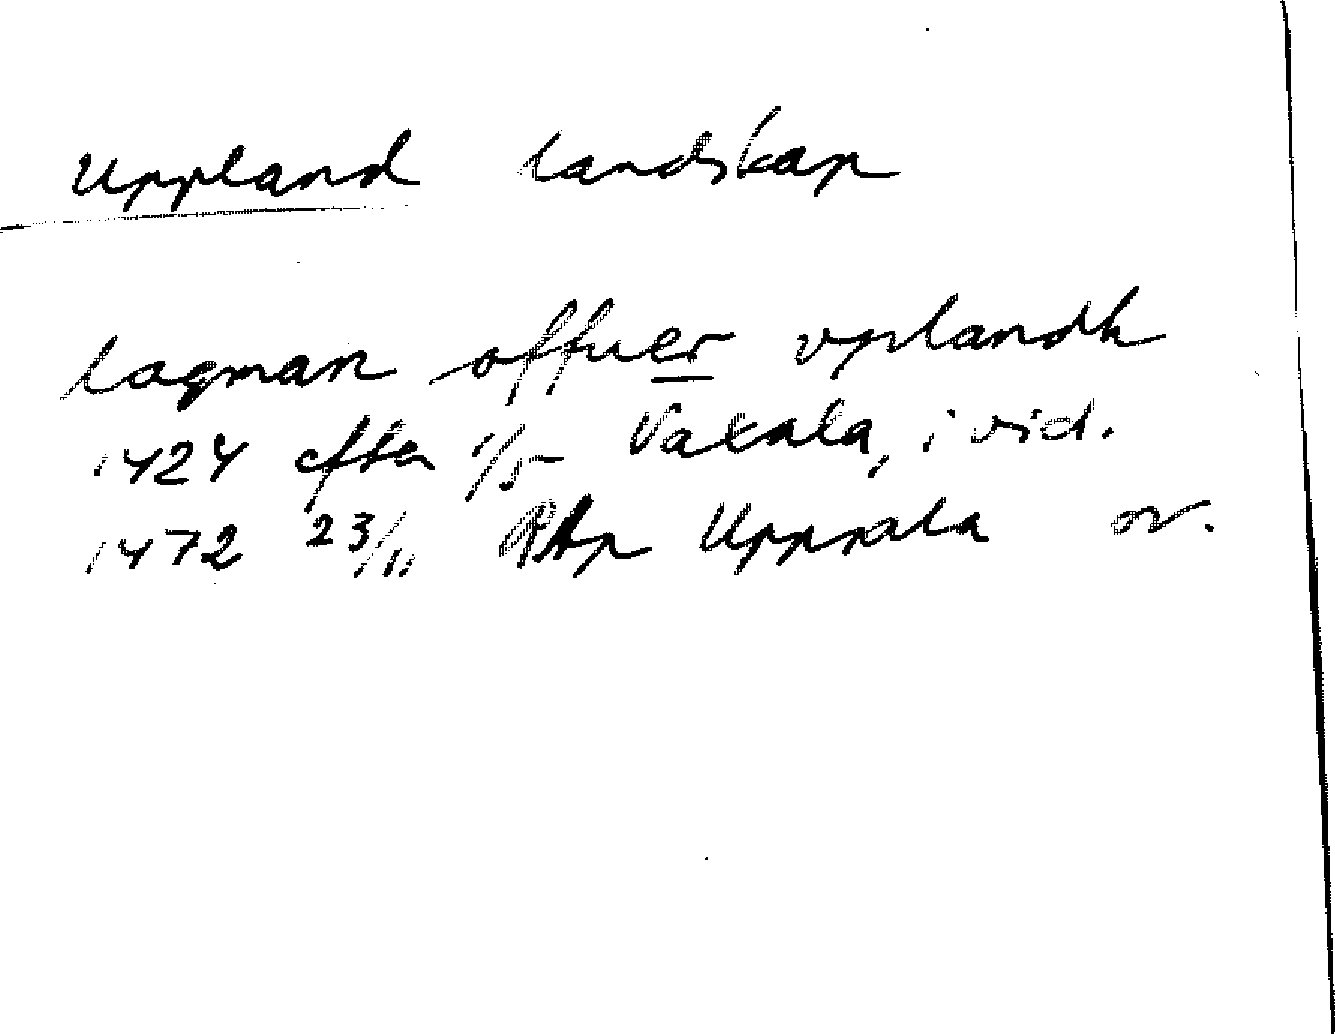 Uppland landskap
lagman offuer vplandh
1424 efter 1/5 Vaksala, i vid.
1472 23/11 RAp Uppsala or.